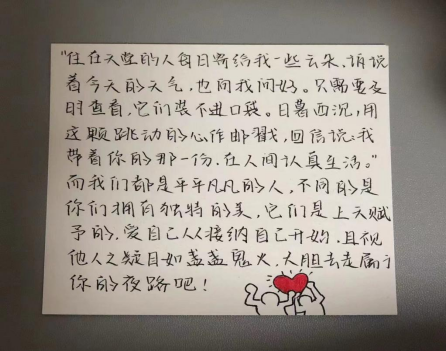 "住在天堂的人每日寄给我一些云朵、诉说
着今天的天气，也向我问好。只需要及
时查看，它们装不进口袋。日暮西沉，用
这颗跳动的心作邮戳，回信说:我
带着你的那一份、在人间认真生活。"
而我们都是平平凡凡的人，不同的是
你们拥有独特的美，它们是上天赋
予的，爱自己从接纳自己开始，且视
他人之疑目如盏盏鬼火，大胆去走属于
你的夜路吧！